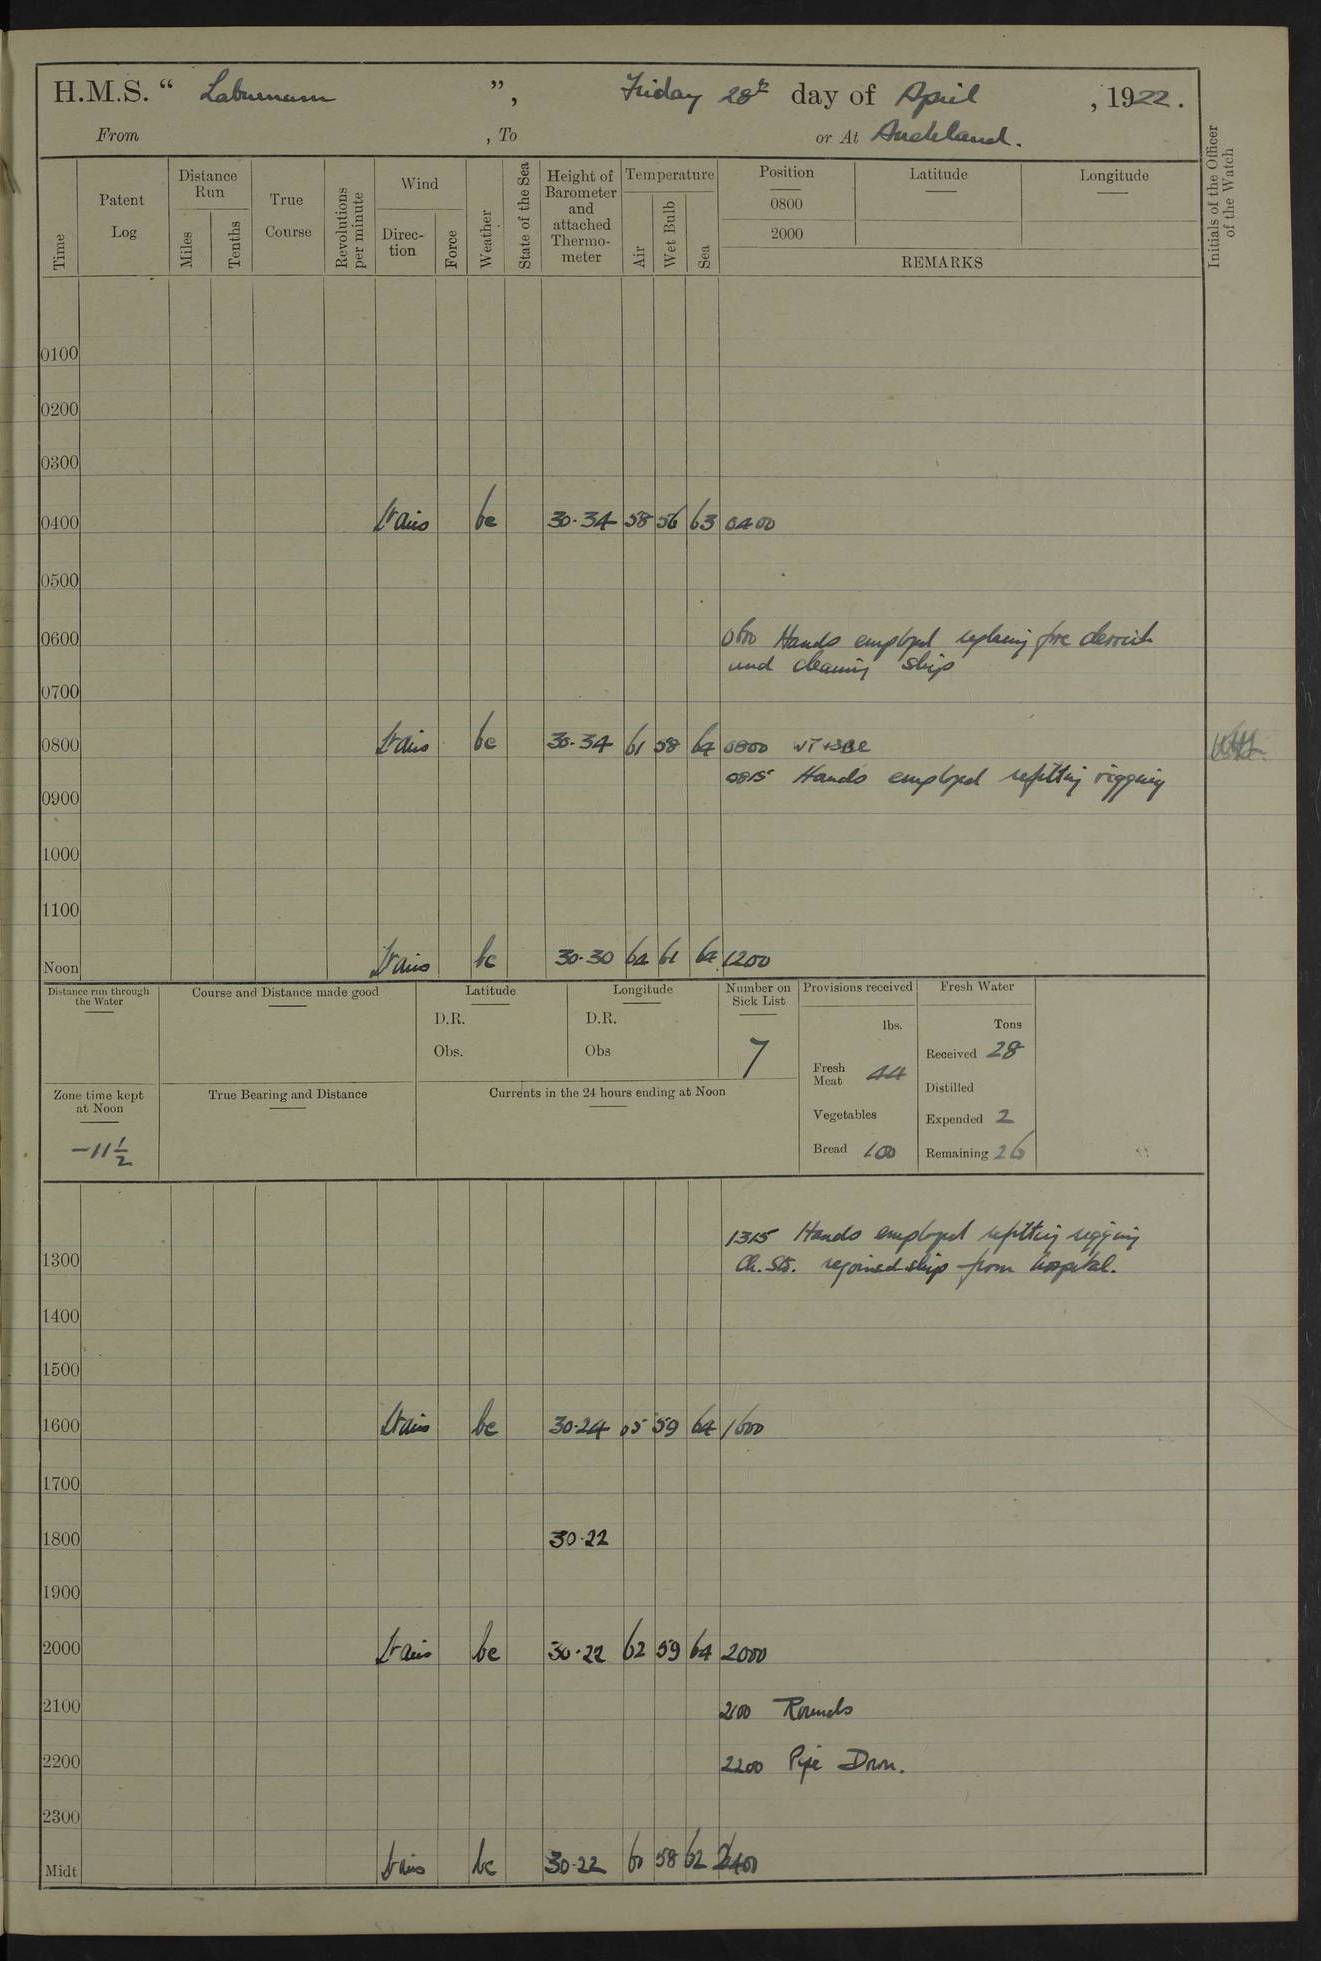 H.M.S. “ Laburnum ”, Friday 28th day of April , 1922.
From , To or At Auckland.
Time
Patent Log
Distance Run
Miles
Tenths
True Course
Revolutions per minute
Wind
Direc-tion
Force
Weather
State of the Sea
Height of Barometer and attached Thermo-meter
Temperature
Air
Wet Bulb
Sea
Position
0800
2000
Latitude
Longitude
REMARKS
Initials of the Officer of the Watch
0100
0200
0300
0400 Lt airs bc 30·34 58 56 63 0400
0500
0600 0600 Hands employed replacing fore derrick
and cleaning ship
0700
0800 Lt airs bc 30·34 61 58 64 0800 WT+SBE
0815 Hands employed refitting rigging
0900
1000
1100
Noon Lt airs bc 30·30 64 61 64 1200
Distance run through the Water
Course and Distance made good
Latitude
D.R.
Obs.
Longitude
D.R.
Obs
Number on Sick List
7
Provisions received
lbs.
Fresh Meat 44
Vegetables
Bread 100
Fresh Water
Tons
Received 28
Distilled
Expended 2
Remaining 26
Zone time kept at Noon
-11½
True Bearing and Distance
Currents in the 24 hours ending at Noon
1315 Hands employed refitting rigging
1300 Ch. Sto. rejoined ship from hospital.
1400
1500
1600 Lt airs bc 30·24 65 59 64 1600
1700
1800 30·22
1900
2000 Lt airs bc 30·22 62 59 64 2000
2100 2100 Rounds
2200 2200 Pipe Down.
2300
Midt Lt airs bc 30·22 60 58 62 2400